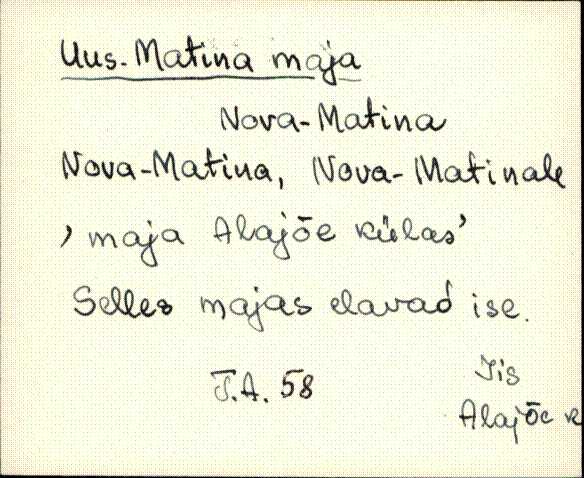 Uus-Matina maja
Nova-Matina
Nova-Matina, Nova-Matinale
, maja Alajõe külas'
Selles majas elavad ise.
T.A. 58
Iis
Alajõe k